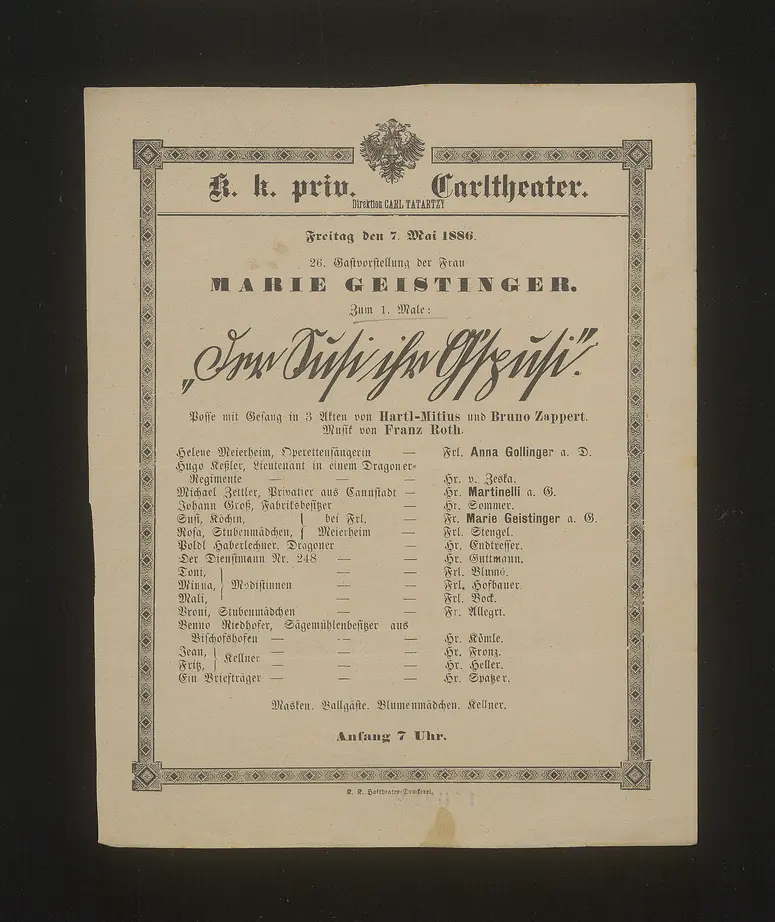 K. k. priv. Carltheater.
Direktion CARL TATARTZY
Freitag den 7. Mai 1886.
26. Gastvorstellung der Frau
MARIE GEISTINGER.
Zum 1. Male:
„Der Susi ihr G'spusi“.
Posse mit Gesang in 3 Akten von Hartl-Mitius und Bruno Zappert.
Musik von Franz Roth.
Helene Meierheim, Operettensängerin — Frl. Anna Gollinger a. D.
Hugo Keßler, Lieutenant in einem Dragoner-
Regimente — — — Hr. v. Zeska.
Michael Zettler, Privatier aus Cannstadt — Hr. Martinelli a. G.
Johann Groß, Fabriksbesitzer — Hr. Sommer.
Susi, Köchin, } bei Frl. — Fr. Marie Geistinger a. G.
Rosa, Stubenmädchen, } Meierheim — Frl. Stengel.
Poldl Haberlechner, Dragoner — Hr. Endtresser.
Der Dienstmann Nr. 248 — — Hr. Guttmann.
Toni, } — — Frl. Blumé.
Minna, } Modistinnen — — Frl. Hofbauer.
Mali, } — — Frl. Bock.
Vroni, Stubenmädchen — — Fr. Allegri.
Benno Riedhofer, Sägemühlenbesitzer aus
Bischofshofen — — — Hr. Kömle.
Jean, } Kellner — — — Hr. Fronz.
Fritz, } — — — Hr. Heller.
Ein Briefträger — — — Hr. Spatzer.
Masken. Ballgäste. Blumenmädchen. Kellner.
Anfang 7 Uhr.
K. K. Hoftheater-Druckerei.